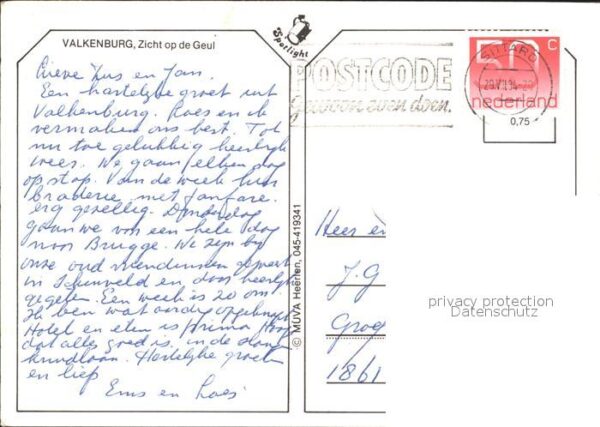 VALKENBURG, Zicht op de Geul
Spotlight
Lieve Zus en Jan.
Een hartelyke groet uit
Valkenburg. Loes en ik
vermaken ons best. Tot
nu toe gelukkig heerlyk
weer. We gaan elken dag
op stap. Van de week hier
Braderie met fanfare.
erg gezellig. Donderdag
gaan we voor een hele dag
naar Brugge. We zyn by
onze oud geweest
in en door heerlyk
gegeten. Een week is zo om.
Ik ben wat aardig opgeknapt
Hotel en eten is prima Hoop
dat alles goed is. in de
Hartelyke groeten
en liefs
en Loes
© MUVA Heerlen, 045-419341
POSTCODE
Gewoon even doen.
SITTARD
50 C
nederland
0,75
Heer en
J.G
1861
privacy protection
Datenschutz